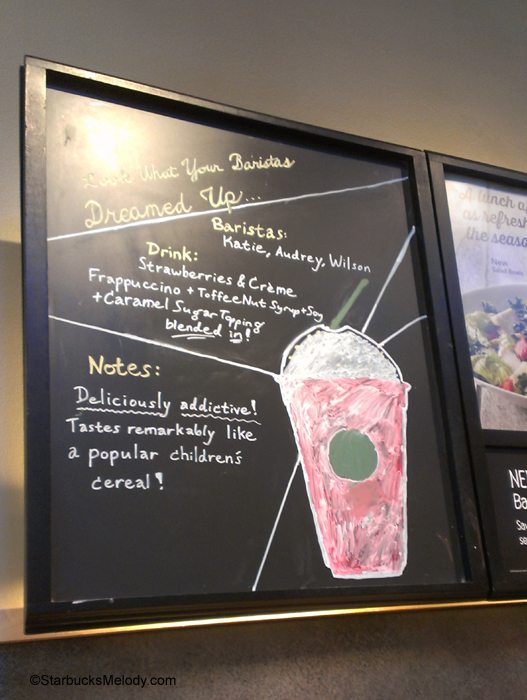 Look What Your Baristas
Dreamed Up...
Baristas:
Katie, Audrey, Wilson
Drink:
Strawberries & Crème
Frappuccino + Toffee Nut Syrup + Soy
+ Caramel Sugar Topping
blended in!
Notes:
Deliciously addictive!
Tastes remarkably like
a popular children's
cereal!
lunch
as refresh
the seaso
New
NE
Ba
Sav
se
©StarbucksMelody.com